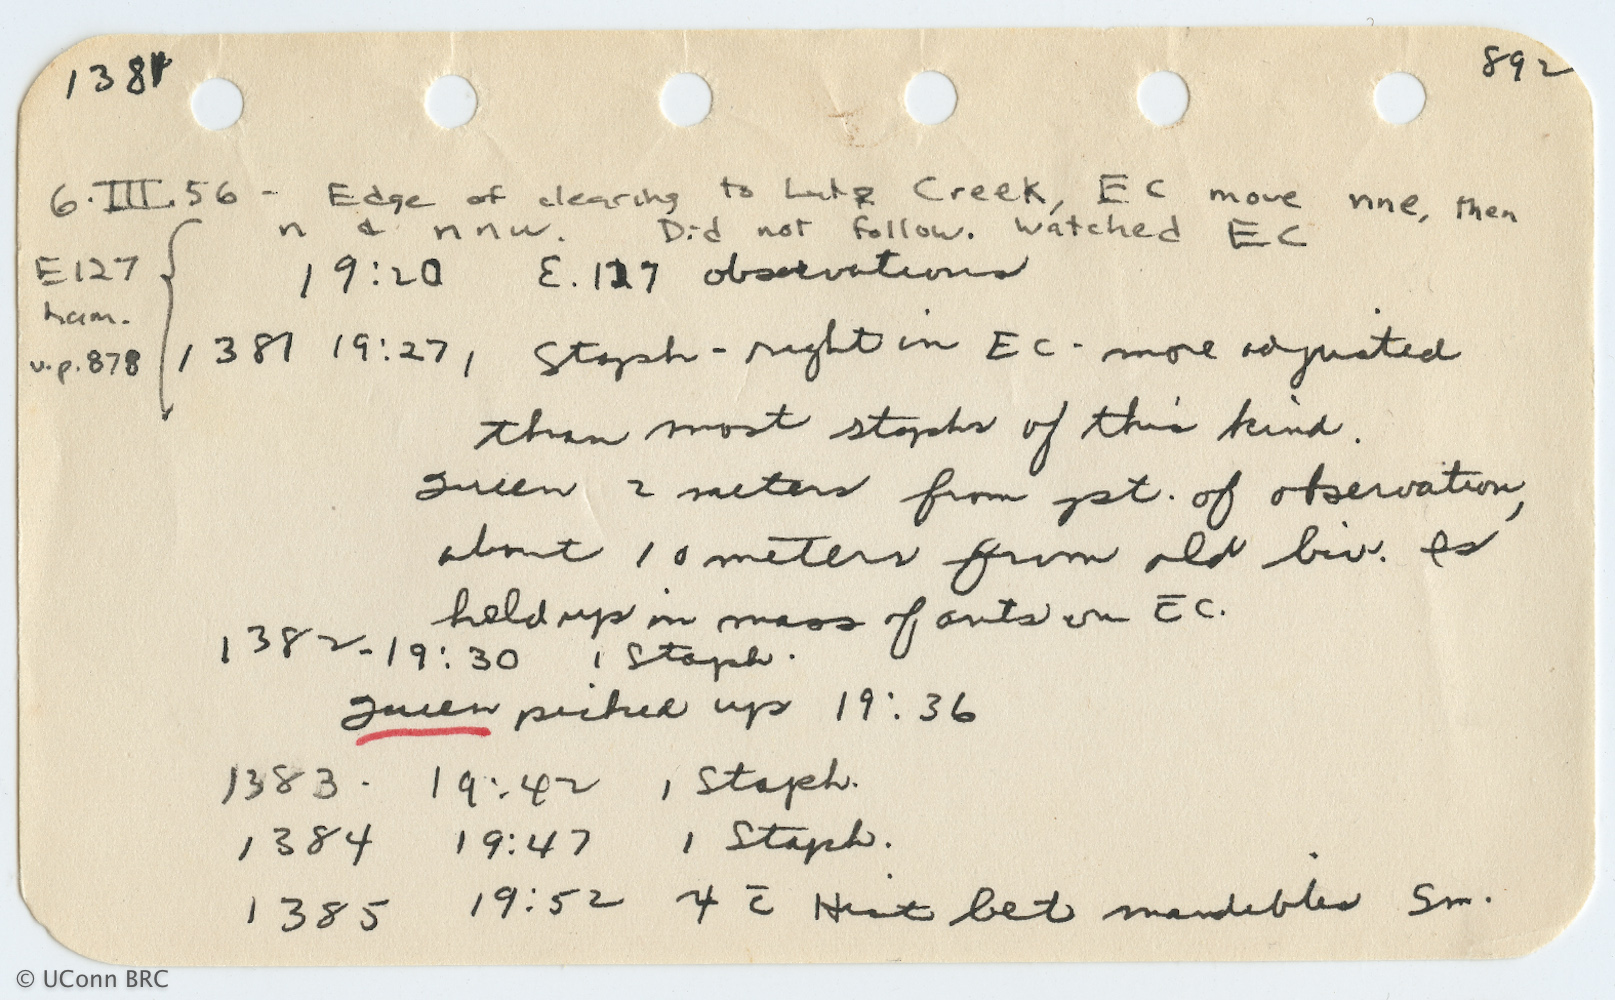 1381
892
6.III.56 - Edge of clearing to Lutz Creek, EC move nne, then
n & nnw. Did not follow. Watched EC
E127
ham.
v.p.878
19:20 E.127 observations
1381 19:27, Staph - right in EC - more adjusted
than most staphs of this kind.
Queen 2 meters from pt. of observation,
about 10 meters from old biv. Is
held up in mass of ants on EC.
1382 - 19:30 1 Staph.
Queen picked up 19:36
1383 - 19:42 1 Staph.
1384 19:47 1 Staph.
1385 19:52 4 c̄ Hist bet mandibles Sm.
© UConn BRC